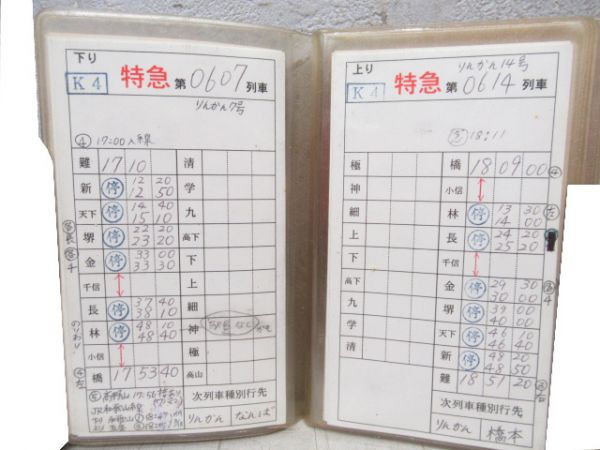 下り
K4 特急 第0607列車
りんかん7号
④ 17:00入線
難 17 10 清
新 停 12 20 12 50 学
天下 停 14 40 15 10 九
堺 停 22 20 23 20 高下
金 停 33 00 33 30 下
千信 上
長 停 37 40 38 10 細
林 停 48 10 48 40 神
小信 極
橋 17 53 40 高山
のりかえ
④左
次列車種別行先
りんかん なんば
上り
りんかん14号
K4 特急 第0614列車
18:11
極 橋 18 09 00 ④
神 小信
細 林 停 13 30 14 00
上 長 停 24 20 25 20
下 千信
高下 金 停 29 30 30 00
九 堺 停 39 00 40 00
学 天下 停 46 10 46 40
清 新 停 48 20 48 50
難 18 51 20
次列車種別行先
りんかん 橋本